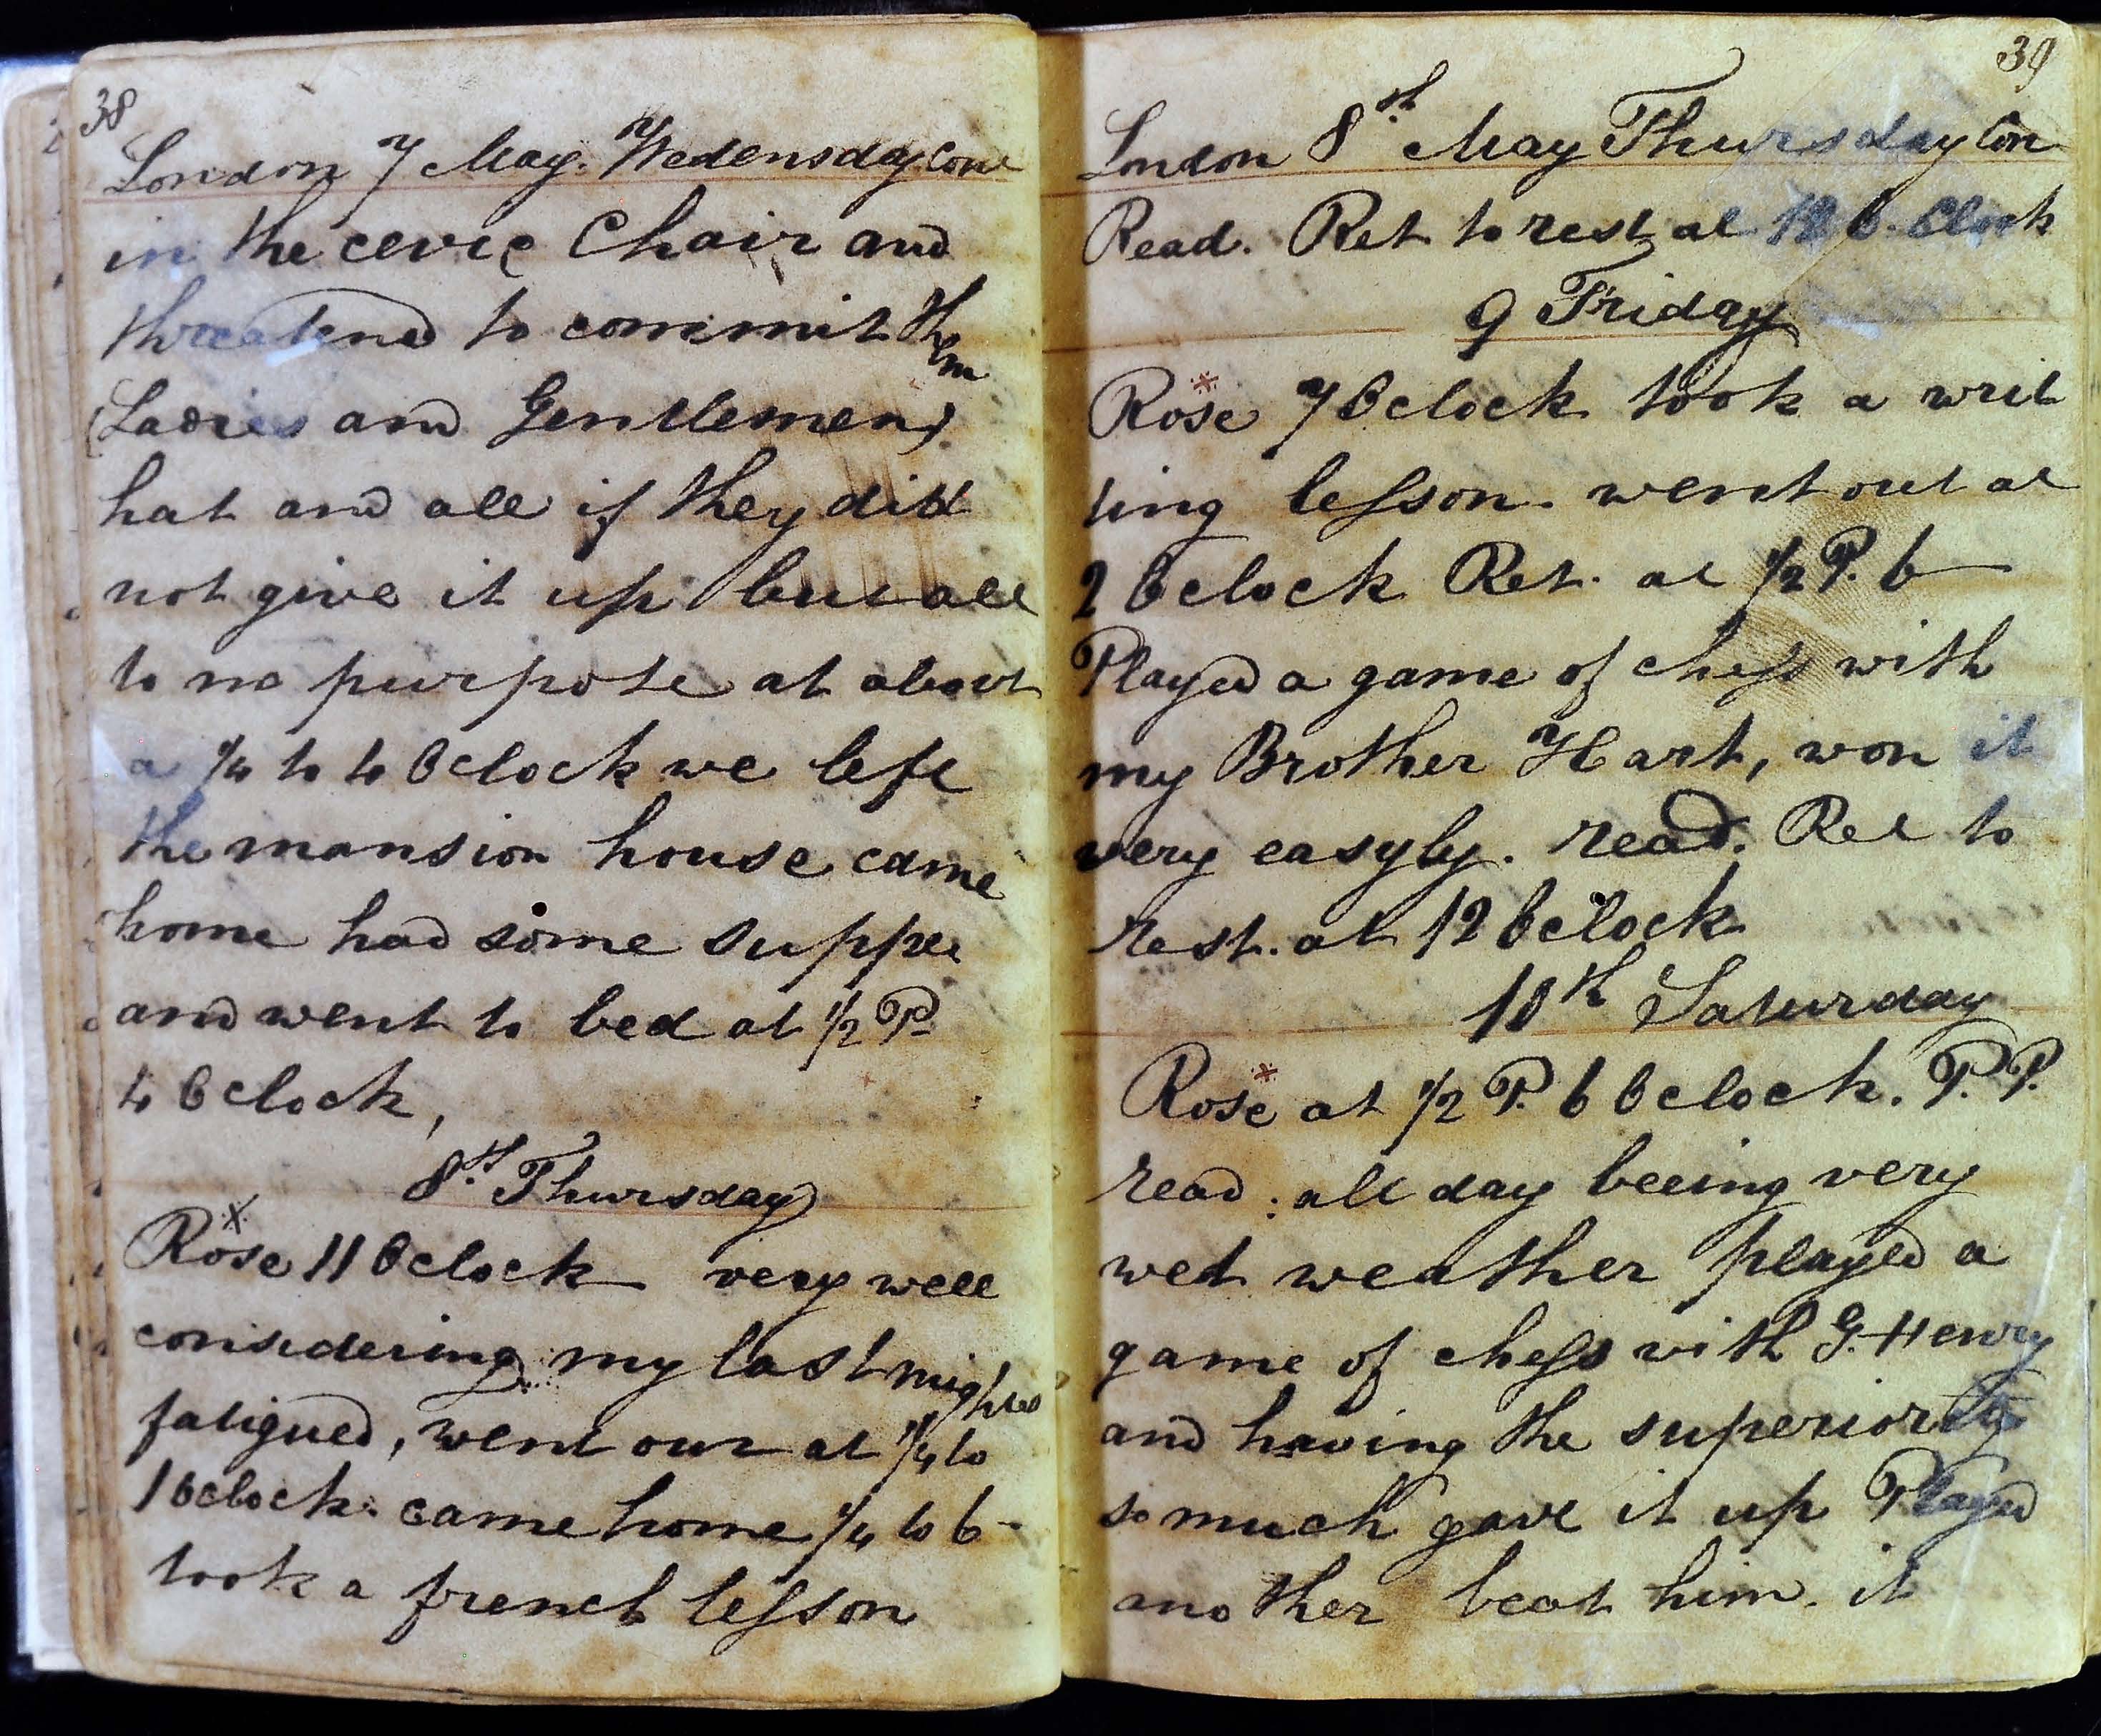 38
London 7 May. Wedensday Con
in the cevic Chair and
threatend to commit them
(Ladies and Gentlemen)
hat and all if they did
not give it up but all
to no purpose at about
a 1/4 to 4 Oclock we left
the mansion house came
home had some supper
and went to bed at 1/2 P
4 Oclock,
8th Thursday
Rose 11 Oclock very well
considering my last nights
fatigued, went out at 1/4 to
1 Oclock. came home 1/4 to 6
took a french lesson
39
London 8th May Thursday Con
Read. Ret to rest at 12 O. Clock
9 Friday
Rose 7 Oclock took a writ
ting lesson. went out at
2 Oclock Ret. at 1/2 P. 6
Played a game of chess with
my Brother Hart, won it
very easyly. read. Ret to
rest. at 12 Oclock
10th Saturday
Rose at 1/2 P. 6 Oclock. P. P.
read. all day beeing very
wet weather played a
game of chess with G. Henry
and having the superiority
so much gave it up Played
another beat him. it